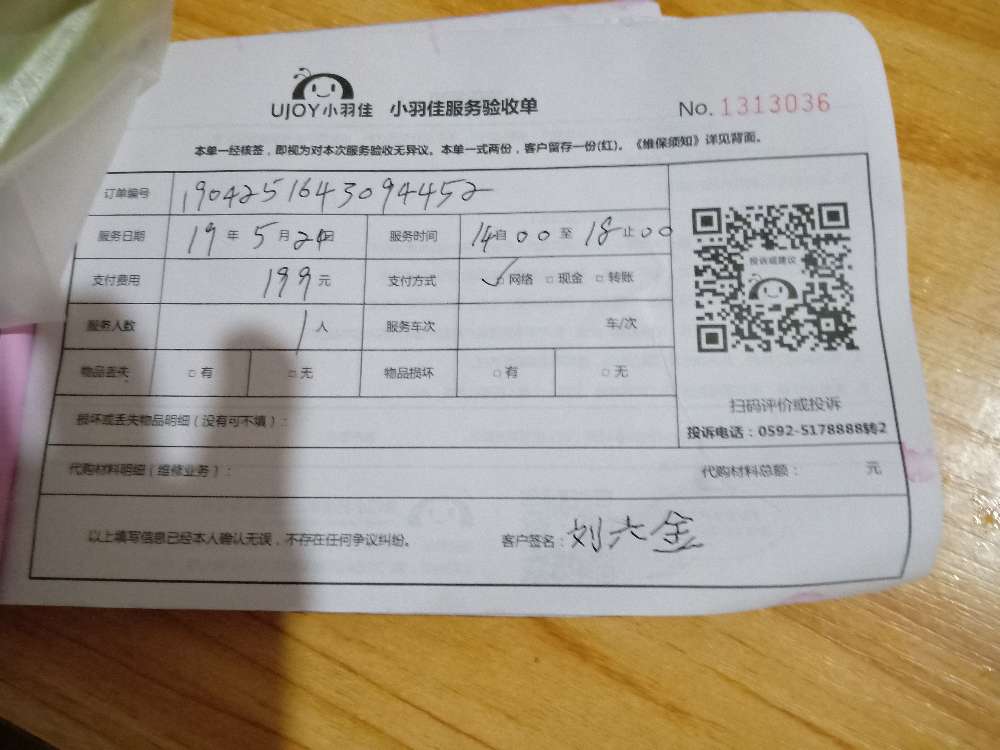 UJOY小羽佳 小羽佳服务验收单 No. 1313036
本单一经核签，即视为对本次服务验收无异议。本单一式两份，客户留存一份(红)。《维保须知》详见背面。
订单编号 1904251643094452
服务日期 19 年 5 月 日 服务时间 14 自 00 至 18 止 00
投诉或建议
支付费用 199 元 支付方式 ✓□网络 □现金 □转账
服务人数 1 人 服务车次 车/次
物品丢失 □有 □无 物品损坏 □有 □无
扫码评价或投诉
损坏或丢失物品明细（没有可不填）：
投诉电话：0592-5178888转2
代购材料明细（维修业务）： 代购材料总额： 元
以上填写信息已经本人确认无误，不存在任何争议纠纷。 客户签名：刘六金